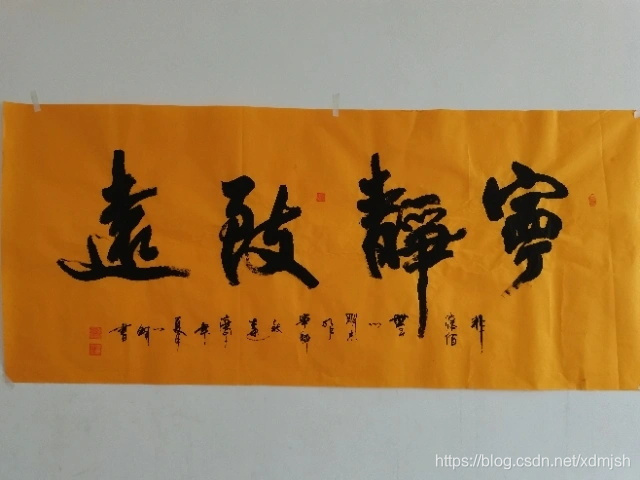 寧靜致遠
非 泊無以明志非寧靜致遠 年夏 書
https://blog.csdn.net/xdmjsh